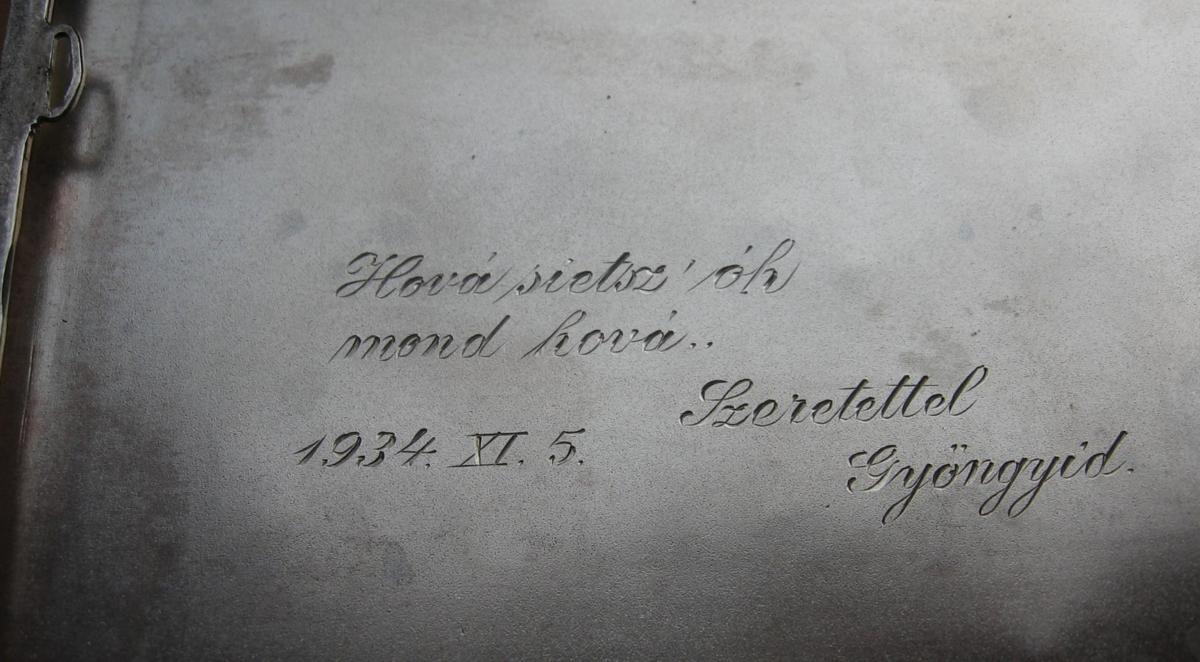 Hová sietsz' óh
mond hová..
Szeretettel
1934. XI. 5.
Gyöngyid.